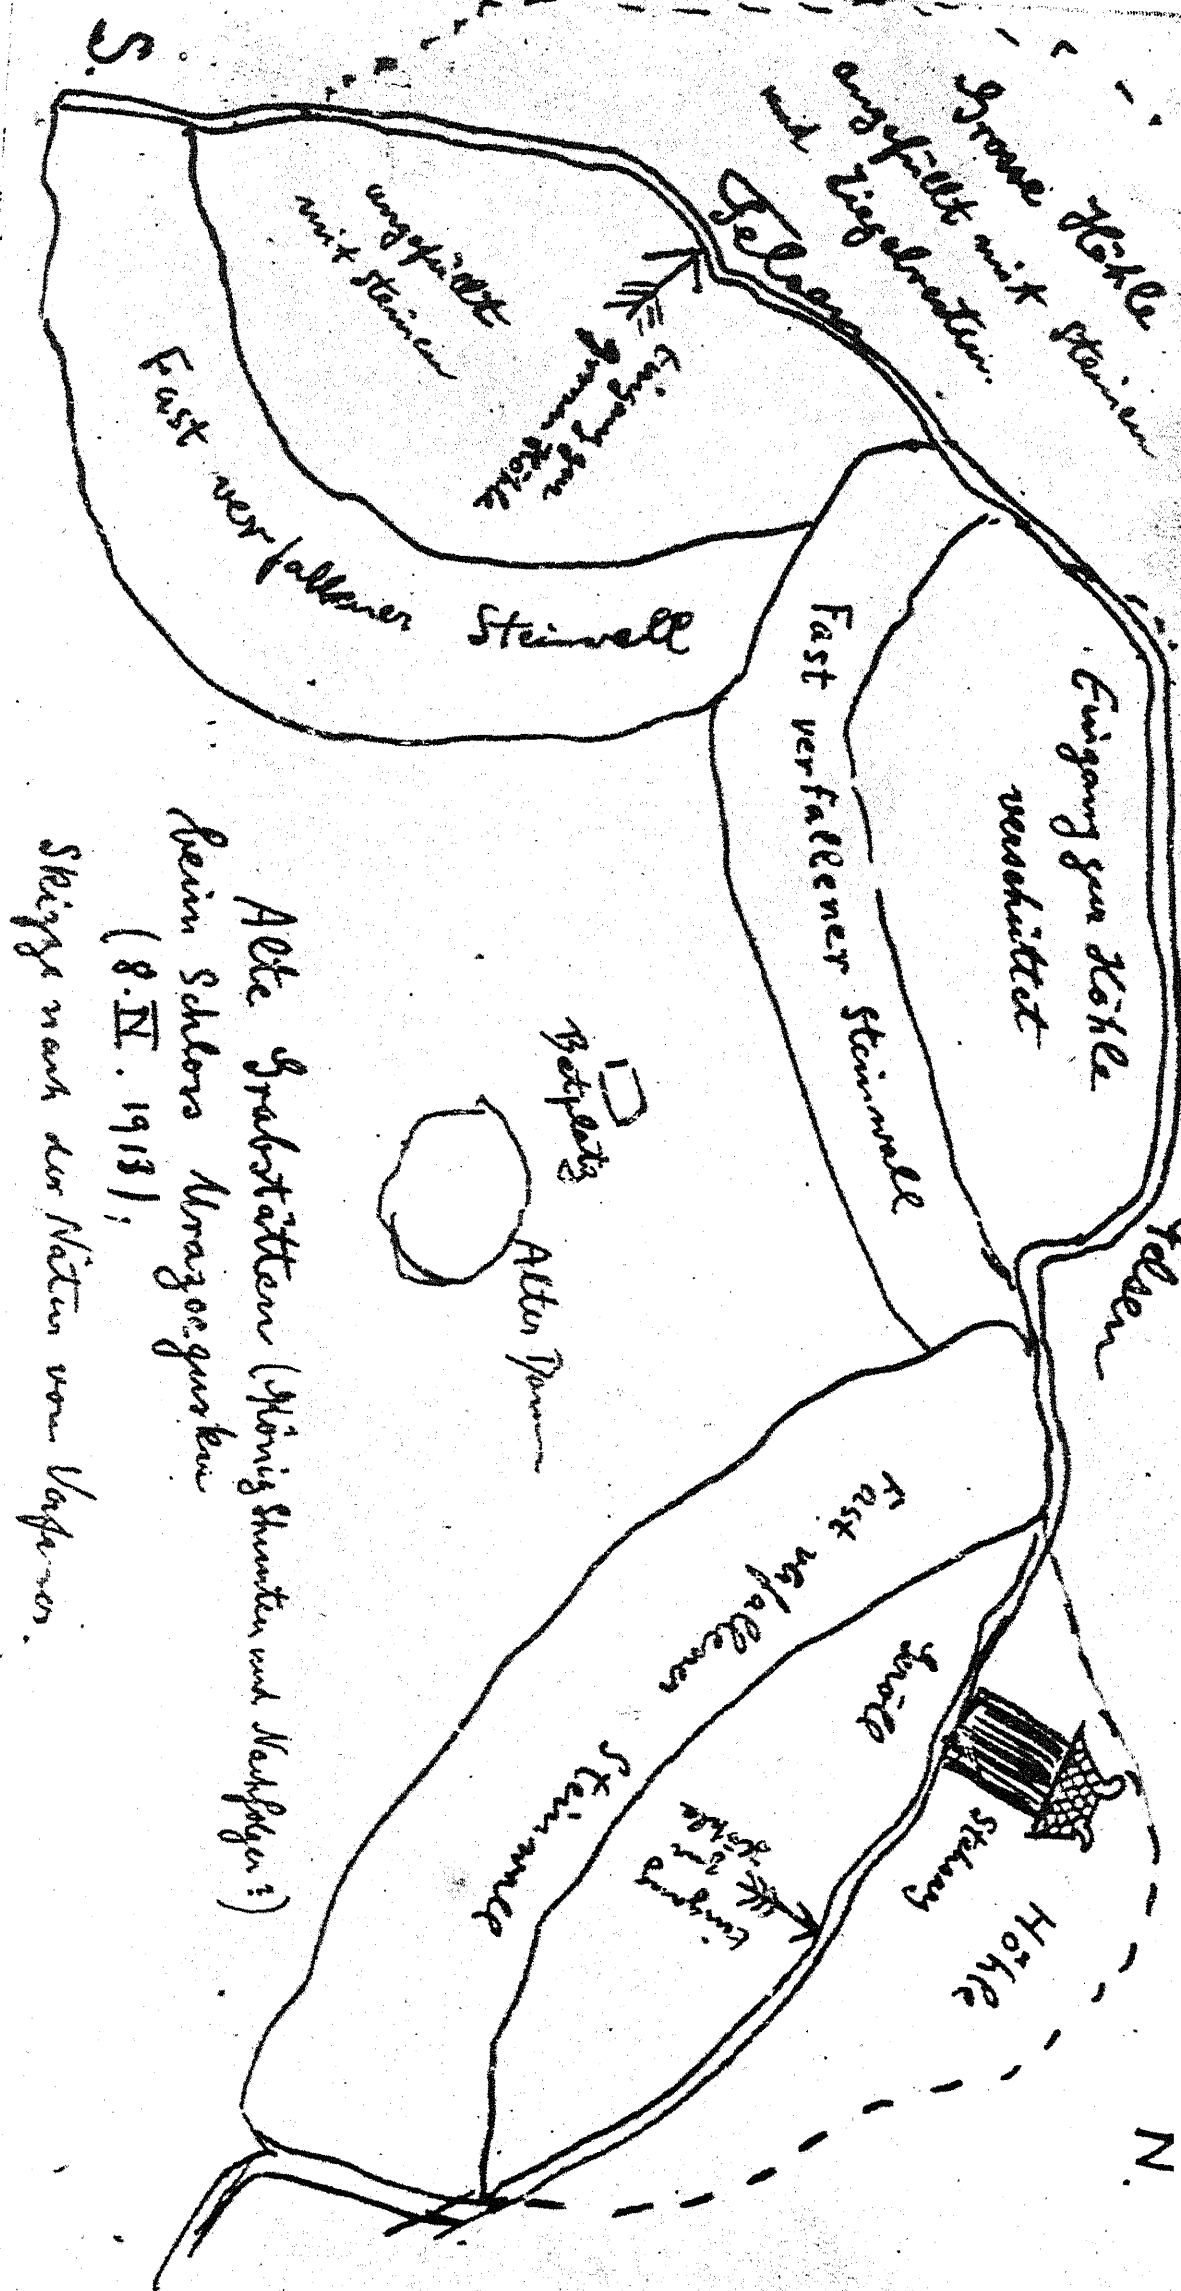 S.
Grosse Höhle
angefüllt mit Steinen
und Ziegelsteinen.
Felsen
angefüllt
mit Steinen
Eingang zur
grossen Höhle
Fast verfallener Steinwall
Fast verfallener Steinwall
Eingang zur Höhle
verschüttet
Felsen
Betplatz
Alter Dorn
Fast verfallener
Steinwall
Geröll
Eingang zur
Höhle
Stehsarg
Höhle
N.
Alte Grabstätten (König Shunten und Nachfolger?)
beim Schloss Urazoegusku
(8. IV. 1913);
Skizze nach der Natur vom Verfasser.